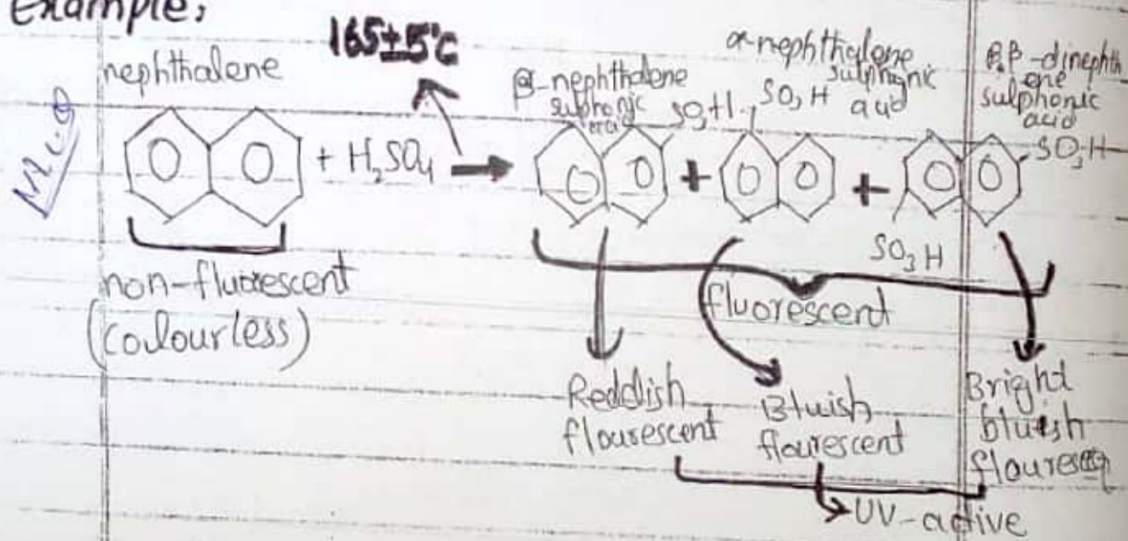 Example;
165±5°C
nephthalene
β-nephthalene
sulphonic
SO3H
α-nephthalene
sulphonic
acid
SO3H
β,β-dinephth
ene
sulphonic
acid
SO3H
M.C.Q
+ H2SO4
+
+
SO3H
non-fluorescent
(colourless)
fluorescent
Reddish
flourescent
Bluish
flourescent
Bright
bluish
UV-active